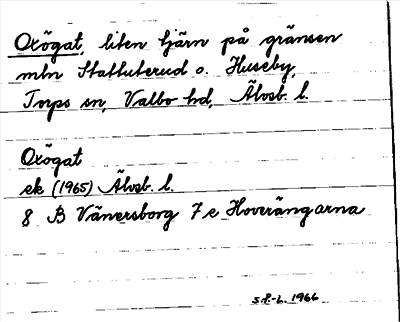 Oxögat, liten tjärn på gränsen
mln Stattuterud o. Huseby,
Torps sn, Valbo hd, Älvsb. l.
Oxögat
ek (1965) Älvsb. l.
8 B Vänersborg 7 e Hoverängarna
S.F.-L. 1966